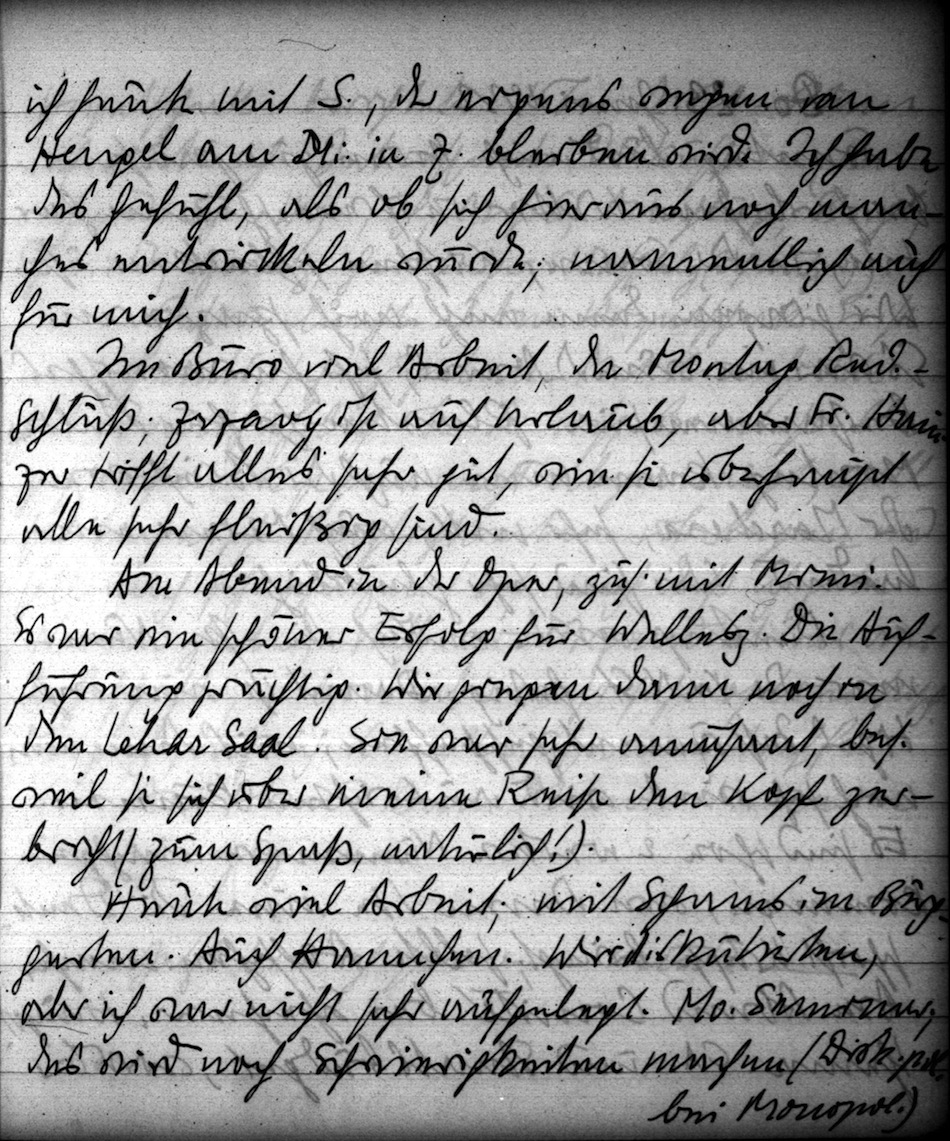 ich heute mit S., der
Hengel am Di. in Z. bleiben wird. Ich habe
das Gefühl, als ob sich hieraus noch man-
ches entwickeln würde; namentlich auch
für mich.
Im Büro viel Arbeit, der Montag Red.-
Schluß; ist auf Urlaub, aber Fr.
trifft alles sehr gut, wie sie überhaupt
alle sehr fleißig sind.
Am Abend in der Oper, zus. mit
Es war ein schöner Erfolg für Wellesz. Die Auf-
führung prächtig. Wir gingen dann noch in
den Lehar Saal. Sie war sehr amüsant, bes.
weil sie sich über meine Reise den Kopf zer-
bricht (zum Spaß, natürlich!).
Heute viel Arbeit; mit im Burg-
garten. Auch Hannchen. Wir diskutierten,
aber ich war nicht sehr aufgelegt. Mo.
das wird noch Schwierigkeiten machen (Disk.
bei Monopol.)